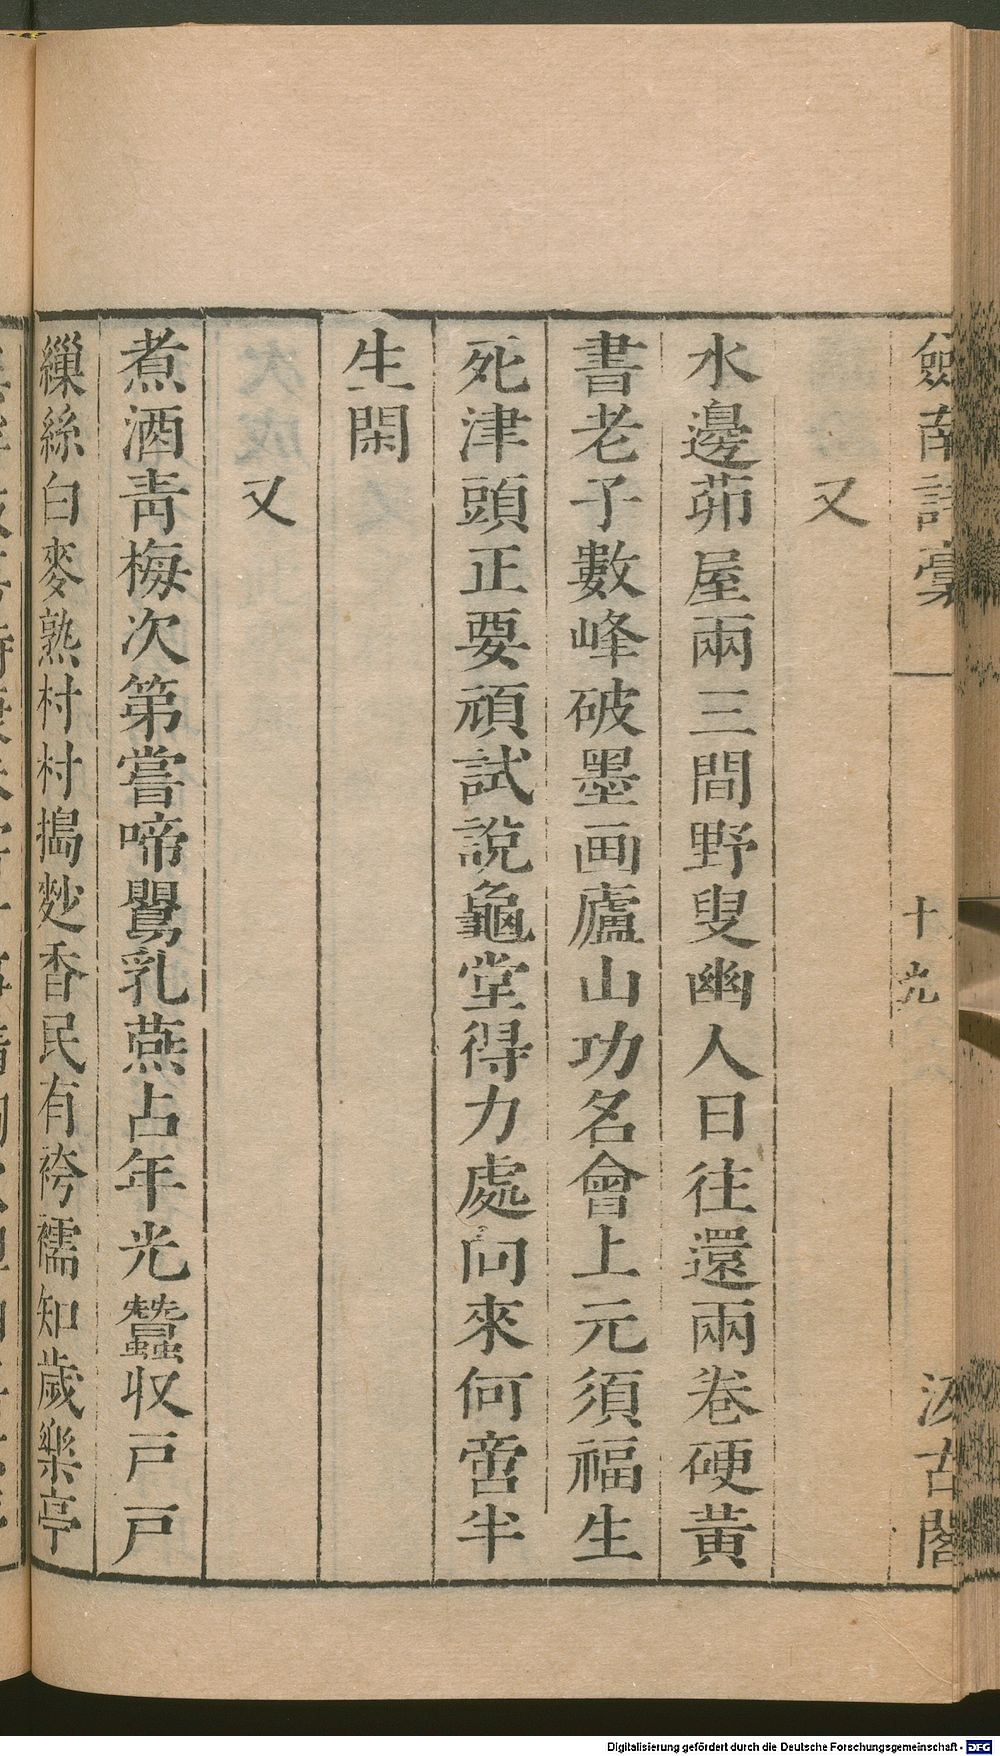 劍南詩稾
十九
汲古閣
又
水邊茆屋兩三間野叟幽人日往還兩卷硬黃
書老子數峰破墨画廬山功名會上元須福生
死津頭正要頑試說龜堂得力處向來何啻半
生閑
又
煮酒靑梅次第嘗啼鶯乳燕占年光蠶收戸戸
繅絲白麥熟村村搗麨香民有袴襦知歲樂亭
Digitalisierung gefördert durch die Deutsche Forschungsgemeinschaft - DFG